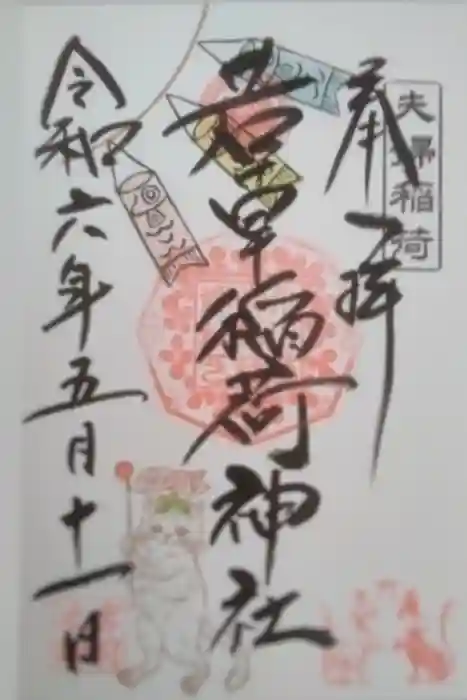 夫婦稲荷
奉拝
若草稲荷神社
令和六年五月十一日